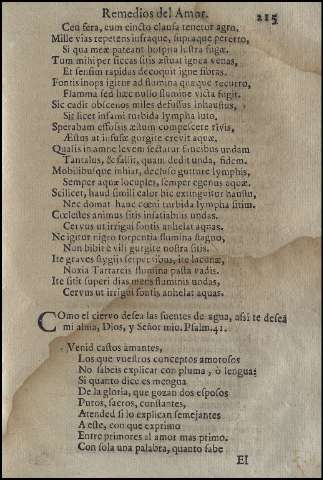 Remedios del Amor. 215
Ceu fera, cum cincto clausa tenetur agro.
Mille vias repetens infraque, supraque percurro,
Si qua meæ pateant hospita lustra fugæ.
Tum mihi per siccas sitis æstuat ignea venas,
Et sensim rapidas decoquit igne fibras.
Fontis inops igitur ad flumina quæque recurro,
Flamma sed hæc nullo flumine victa fugit.
Sic cadit obscænos miles defussus inhaustus,
Sit licet infami turbida lympha luto,
Sperabam effossis æstum compescere rivis,
Æstus at infusæ gurgite crevit aquæ.
Qualis inamne levem sectatur faucibus undam
Tantalus, & fallit, quam dedit unda, fidem.
Mobilibusque inhiat, decluso gutture lymphis,
Semper aquæ locuples, semper egenus aquæ.
Scilicet, haud simili calor hic extinguitur haustu,
Nec domat hanc cœni turbida lympha sitim.
Cœlestes animus sitis insatiabilis undas.
Cervus ut irrigui fontis anhelat aquas.
Ne igitur nigro torpentia flumina stagno,
Non bibit è vili gurgite nostra sitis.
Ite graves stygiis serpentibus, ite lacunæ,
Noxia Tartareis flumina pasta vadis.
Ite sitit superi dias mens fluminis undas,
Cervus ut irrigui fontis anhelat aquas.
COmo el ciervo desea las fuentes de agua, assi te desea
mi alma, Dios, y Señor mio. Psalm. 41.
Venid castos amantes,
Los que vuestros conceptos amorosos
No sabeis explicar con pluma, ò lengua:
Si quanto dice es mengua
De la gloria, que gozan dos esposos
Puros, sacros, constantes,
Atended si lo explican semejantes
A este, con que exprimo
Entre primores al amor mas primo.
Con sola una palabra, quanto sabe
El